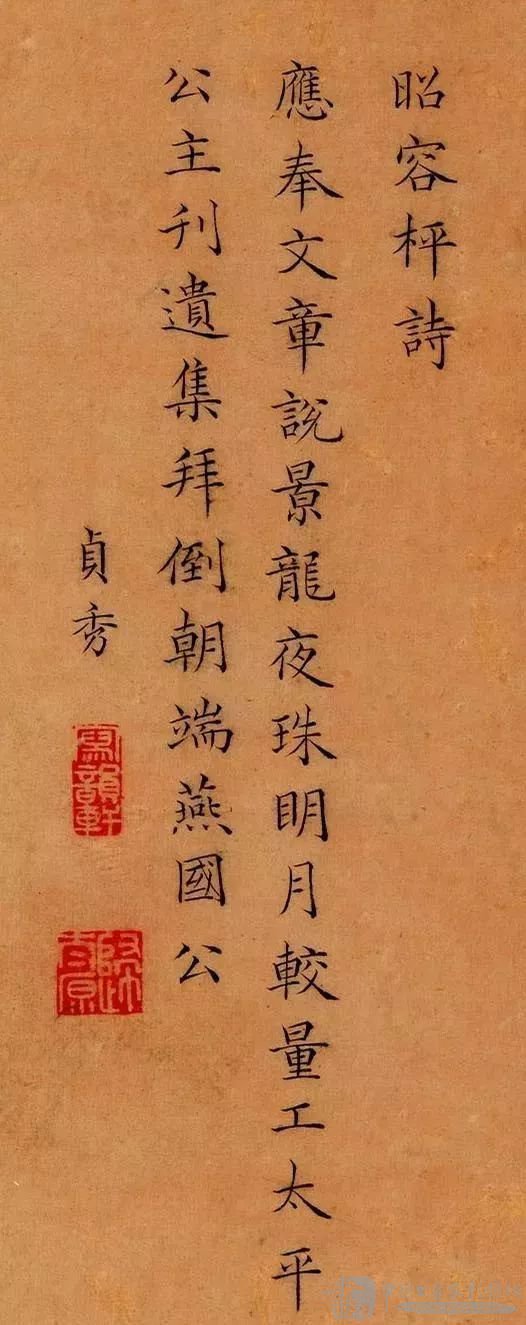 昭容枰詩
應奉文章説景龍夜珠眀月較量工太平
公主刋遺集拜倒朝端燕國公
貞秀
寫韻軒